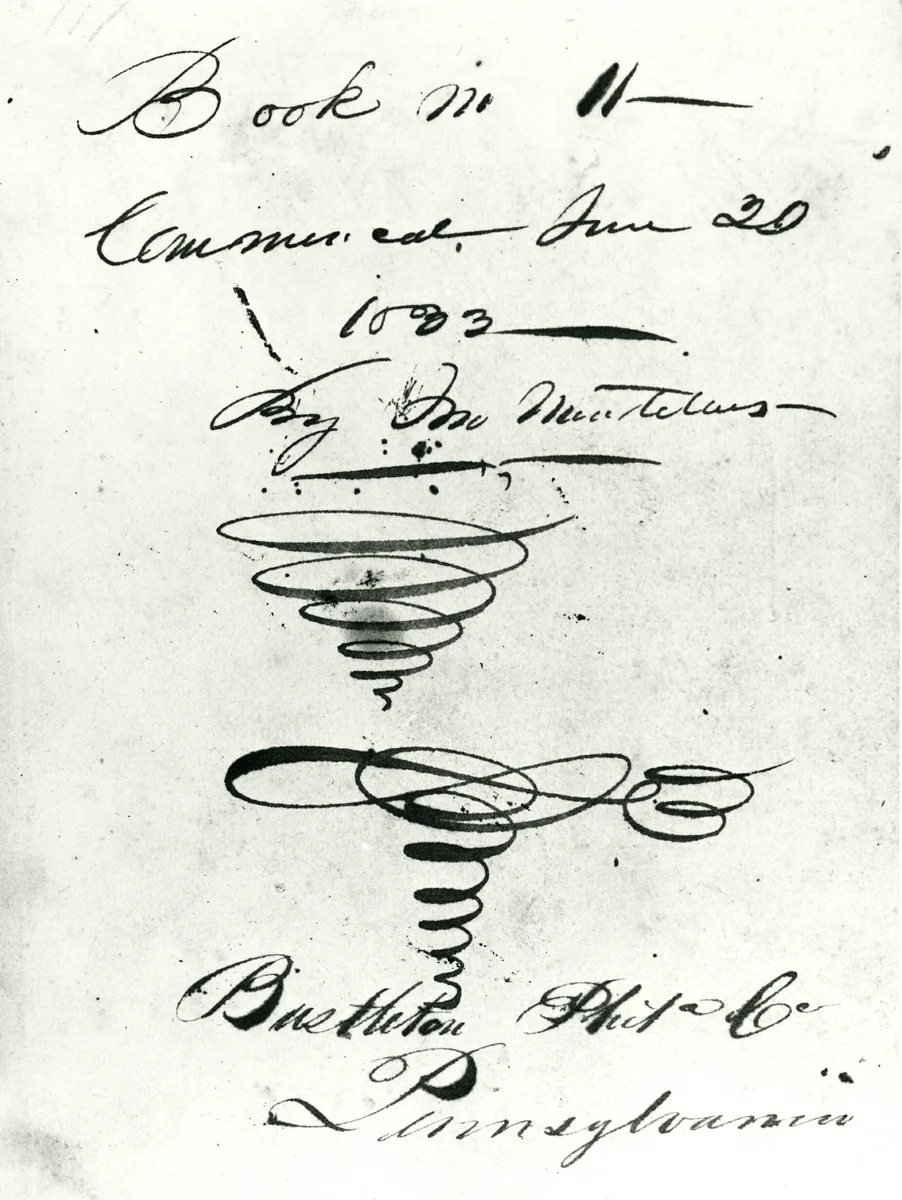 Book No 11
Commencal. June 20
1833
By Jno
Bustleton Phila Co
Pennsylvania